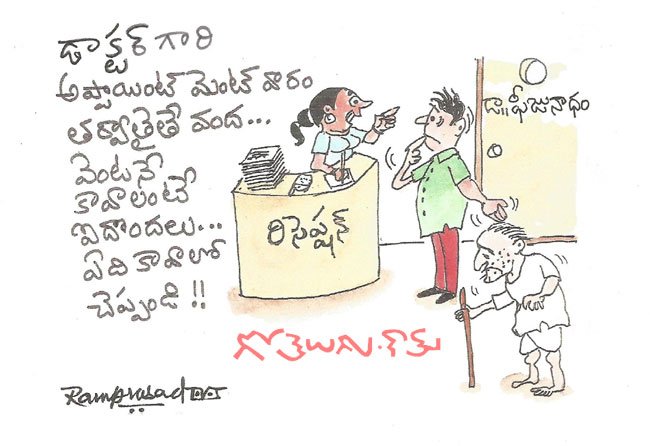 డాక్టర్ గారి
అప్పాయింట్ మెంట్ వారం
తర్వాతైతే వంద...
వెంటనే
కావాలంటే
ఐదొందలు...
ఏది కావాలో
చెప్పండి !!
రిసెప్షన్
డా॥ఫీజునాథం
గోతెలుగు.కామ్
Ramprasad